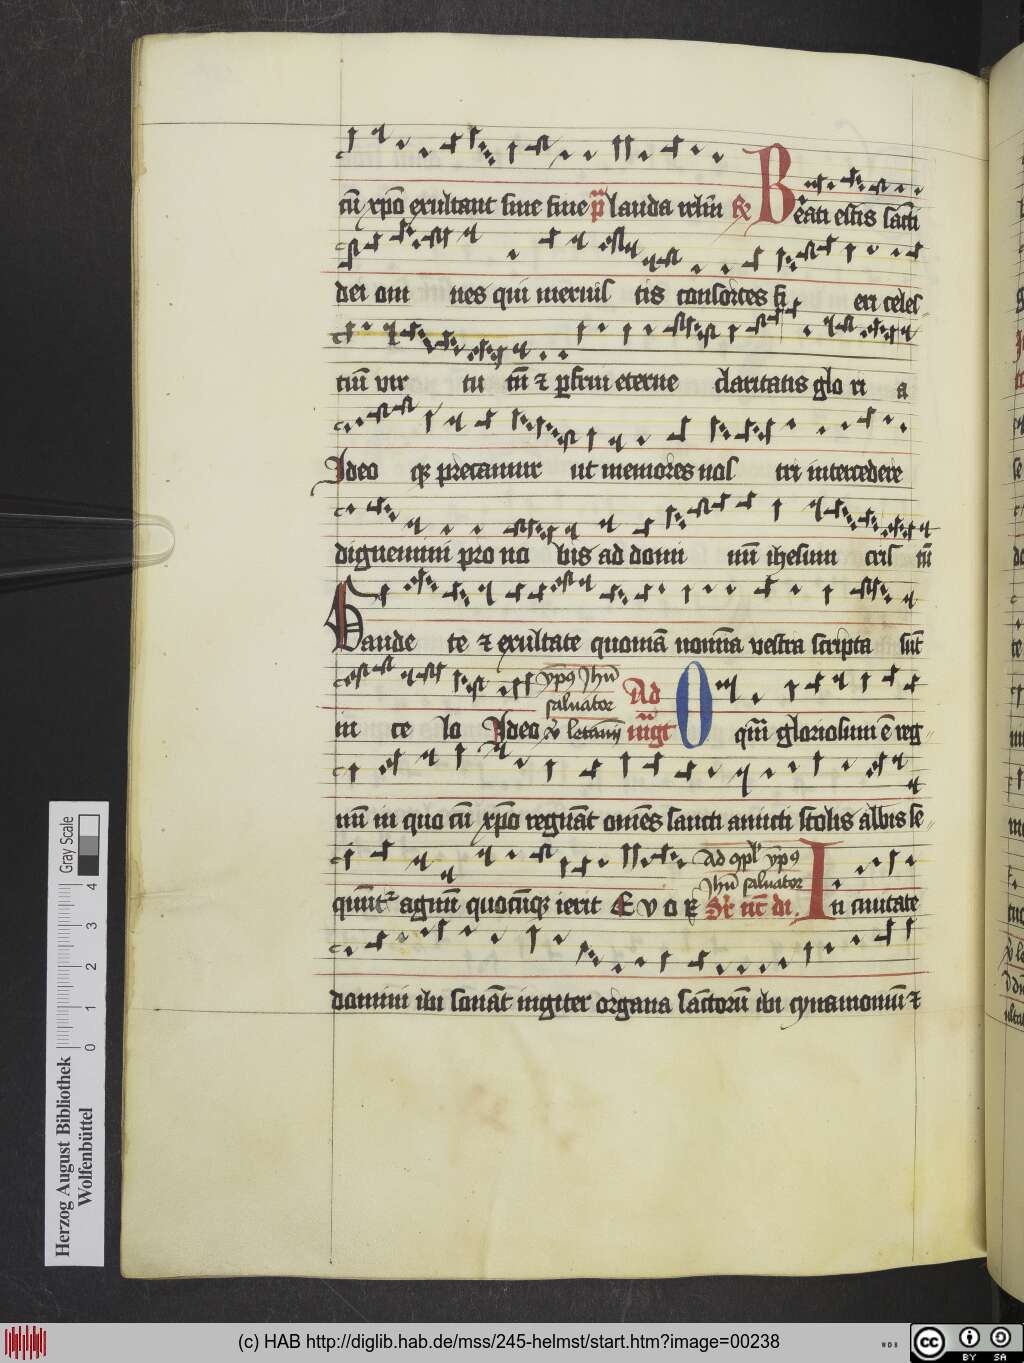 cu̅ xp̅o exultant sine fine p̅s lauda irl̅m R̷ Beati estis sa̅cti
dei om nes qui meruis tis consortes fi eri celes
tiu̅ vir tu tu̅ ⁊ ꝑfrui eterne claritatis glo ri a
Ideo qꝫ precamur ut memores nos tri intercedere
dignemini pro no bis ad domi nu̅ ihesum cris tu̅
Gaude te ⁊ exultate quonia̅ no̅ina vestra scripta su̅t
in ce lo Ideo yp̅s Jhu̅ saluator v̷ letamini Ad m̅gt O qua̅ gloriosum e̅ reg
nu̅ in quo cu̅ xp̅o regna̅t om̅es sancti amicti stolis albis se
quu̅tr agnu̅ quocu̅qꝫ ierit E v o v E ad ꝯpl' yp̅s Jhu̅ saluator In ciuitate
domini ibi sona̅t iugiter organa sa̅ctoru̅ ibi cynamomu̅ ⁊
Gray Scale
0 1 2 3 4
Herzog August Bibliothek
Wolfenbüttel
(c) HAB http://diglib.hab.de/mss/245-helmst/start.htm?image=00238
WDB
cc BY SA